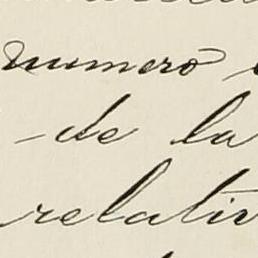 numero
-de la
relativ